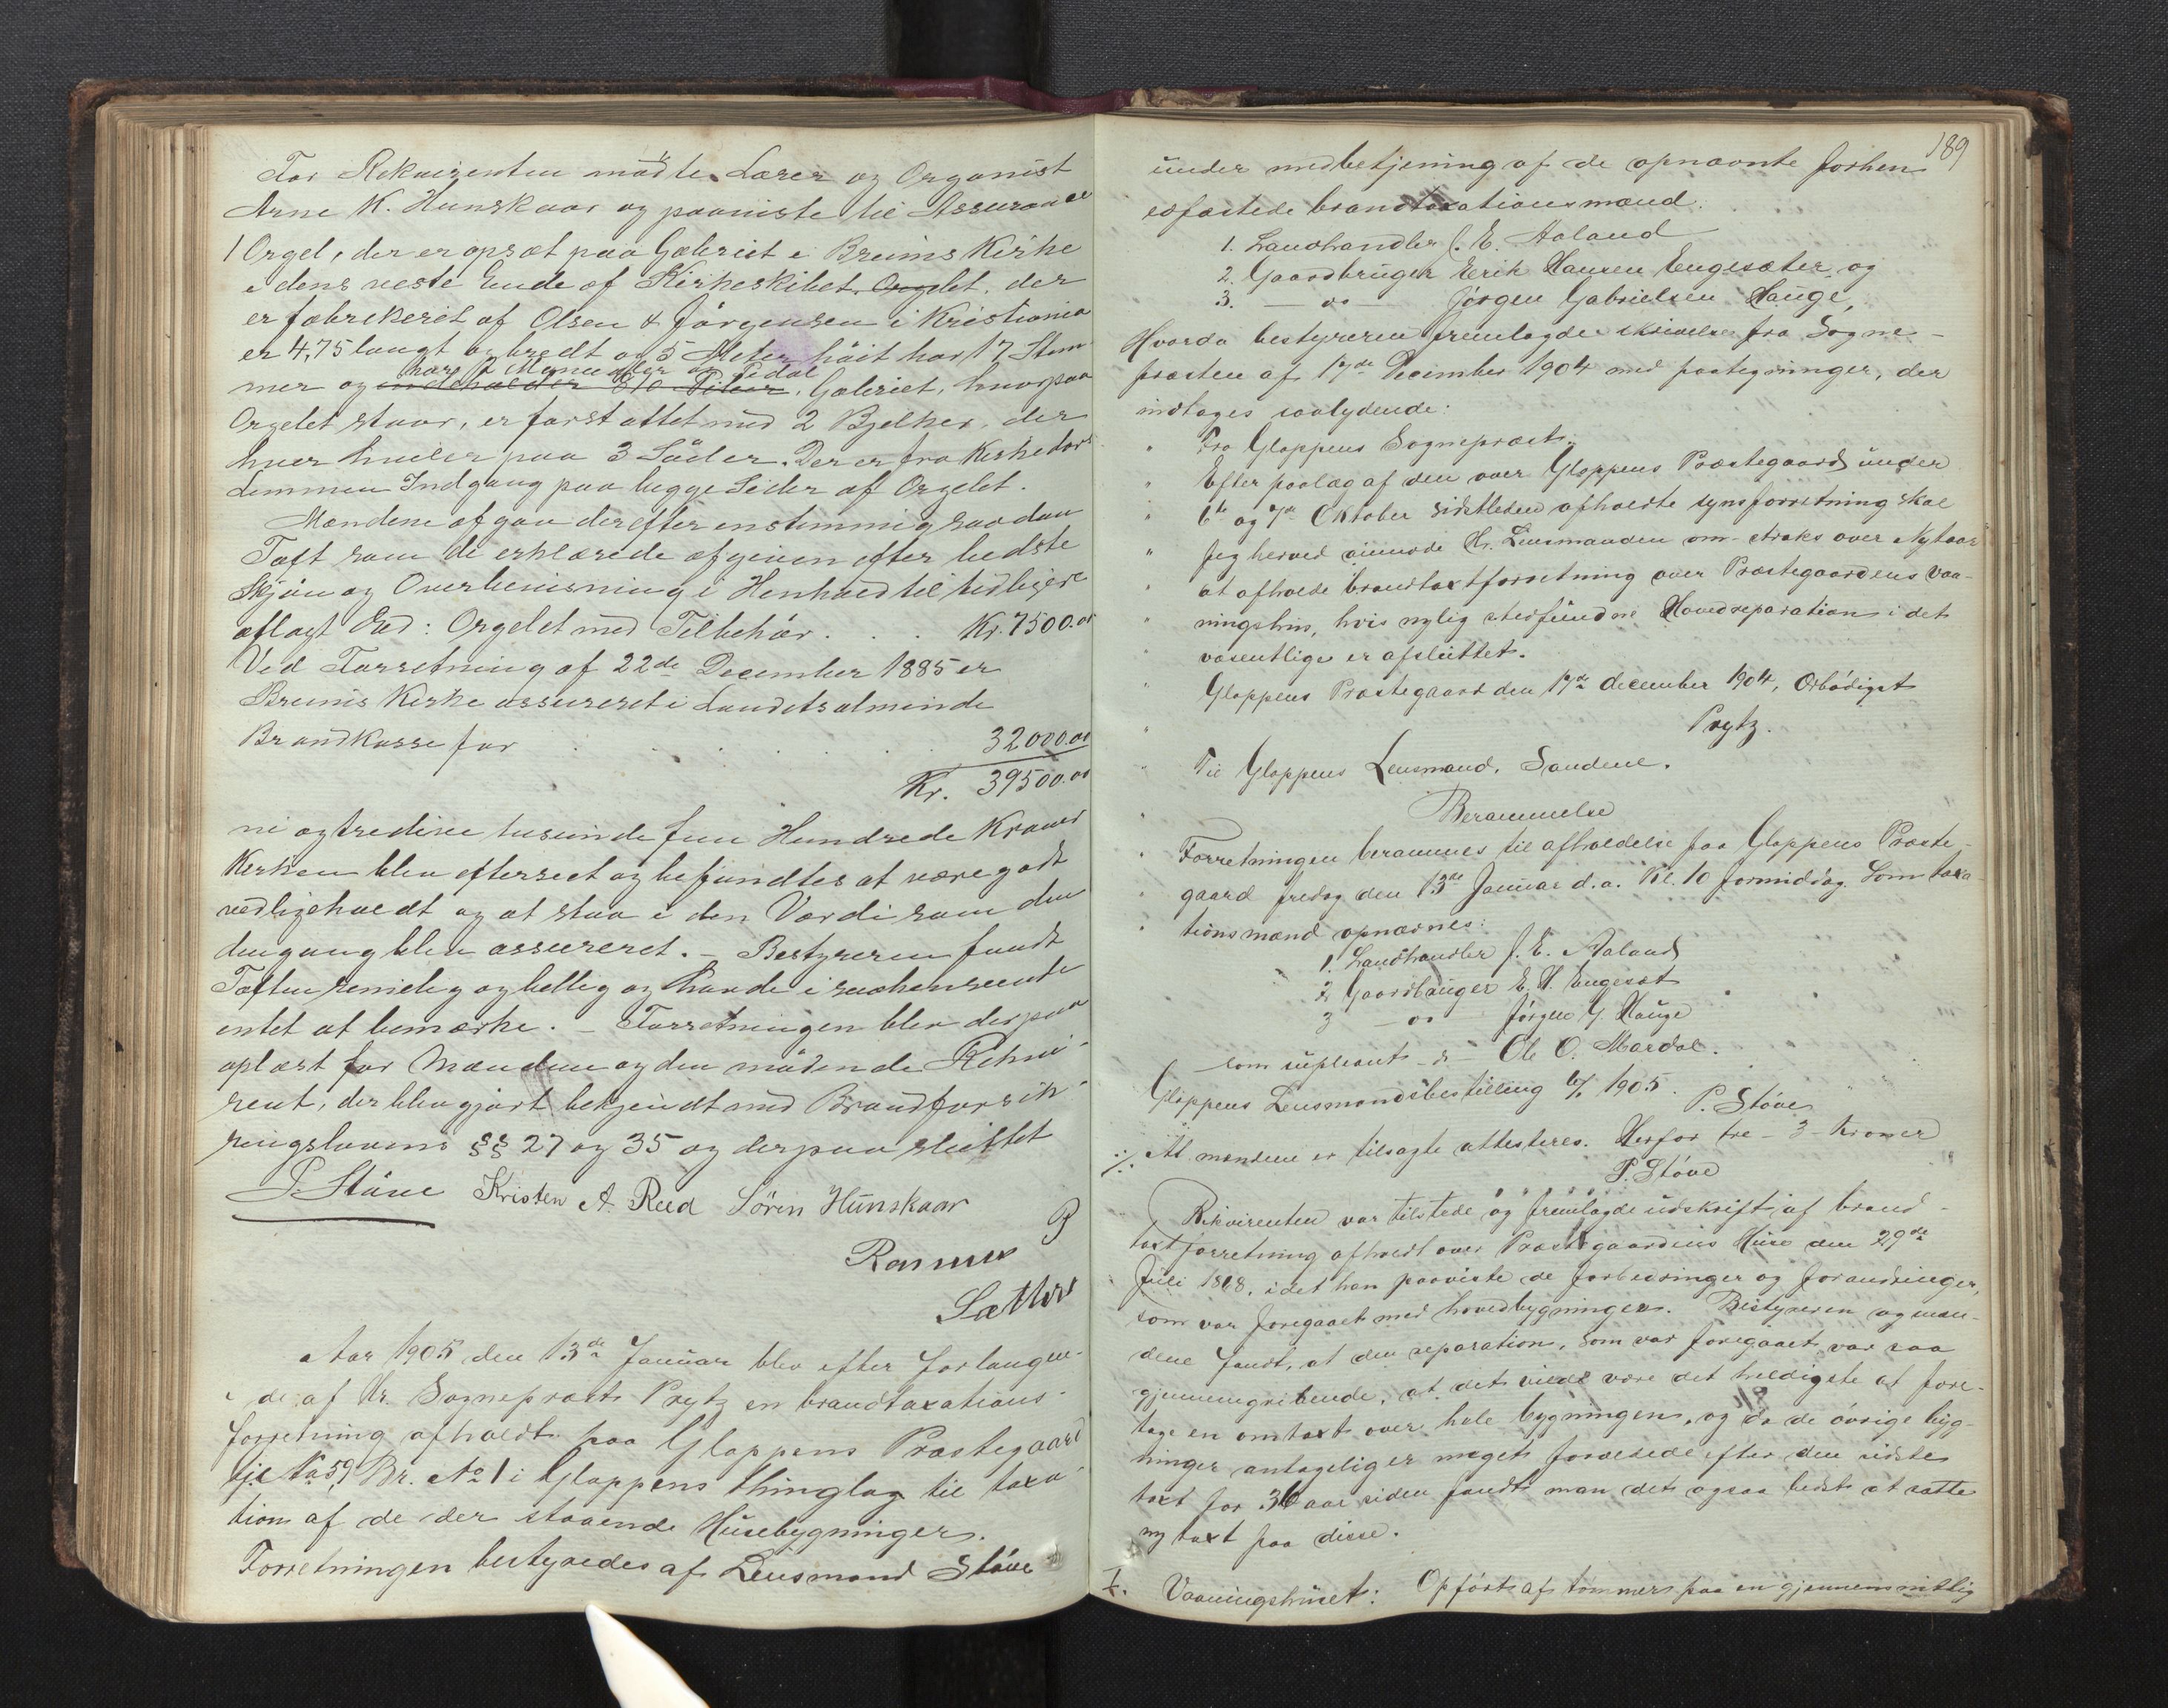 For Rekvirenten mødte Lærer og Organist
Arne K. Hunskaar og paaviste til Assurance
1 Orgel, der er opsat paa Galeriet i Breims Kirke
i dens vestre Ende af Kirkeskibet. Orgelet, der
er fabrikeret af Olsen & Jörgensen i Kristiania
er 4,75 langt og bredt og 5 Meter höit har 17 Stem-
har 2 Manualer og Pedal
mer og indeholder 810 Piber. Galeriet, hvorpaa
Orgelet staar, er forstøttet med 2 Bjelker, der
hver hviler paa 3 Söiler. Der er fra Kirkedørs
Lemmen Indgang paa begge Sider af Orgelet.
Mændene afgav derefter enstemmig saadan
Taxt som de erklærede afgiven efter bedste
Skjøn og Overbevisning i Henhold til tidligere
aflagt Ed: Orgelet med Tilbehör . . . Kr. 7500.00
Ved Forretning af 22de December 1885 er
Breims Kirke assureret i Landets alminde
Brandkasse for . . . . . . 32000.00
Kr. 39500.00
ni og tredive tusinde fem Hundrede Kroner
Kirken blev efterseet og befundtes at være godt
vedligeholdt og at staa i den Værdi som den
dengang blev assureret. – Bestyreren fandt
Taxten rimelig og billig og havde i saahenseende
intet at bemærke. – Forretningen blev derpaa
oplæst for Mændene og den mødende Rekvi-
rent, der blev gjort bekjendt med Brandforsik-
ringslovens §§ 27 og 35 og derpaa sluttet
P. Støve Kristen A. Reed Sören Hunskaar
Rasmus
Sæther
Aar 1905 den 13de Januar blev efter forlangen-
de af Hr. Sogneprest Prytz en brandtaxations-
forretning afholdt paa Gloppens Præstegaard
Gr. No 59, Br. No 1 i Gloppens thinglag til taxa-
tion af de der staaende Husebygninger.
Forretningen bestyredes af Lensmand Støve
189
under medbetjening af de opnævnte forhen
edfæstede brandtaxationsmænd.
1. Landhandler J. E. Aaland
2. Gaardbruger Erik Hansen Engesæter og
3. — do — Jörgen Gabrielsen Hauge,
Hvorda bestyreren fremlagde skrivelse fra Sogne-
præsten af 17de December 1904 med paategninger, der
indtages saalydende:
" Fra Gloppens Sogneprest.
" Efter paalæg af den over Gloppens Præstegaard under
" 6te og 7de Oktober sidstleden afholdte synsforretning skal
" Jeg herved anmode Hr. Lensmanden om straks over Nytaar
" at afholde brandtaxtforretning over Præstegaardens vaa-
" ningshus, hvis nylig stedfundne Hovedreparation i det
" væsentlige er afsluttet.
" Gloppens Præstegaard den 17de december 1904, Ærbødigst
" Prytz.
" Til Gloppens Lensmand, Sandene.
" Berammelse
" Forretningen berammes til afholdelse paa Gloppens Præste-
" gaard fredag den 13de Januar d.a. Kl. 10 formiddag. Som taxa-
" tionsmænd opnævnes:
1. Landhandler J. E. Aaland
2. Gaardbruger E. H. Engesæt
3 — do — Jörgen G. Hauge
som supleant – do – Ole O. Mardal.
Gloppens Lensmandsbestilling 6/1 1905. P. Støve
At mændene er tilsagte attesteres. Herfor tre – 3 – Kroner
P. Støve
Rekvirenten var tilstede og fremlagde udskrift af brand-
taxtforretning afholdt over Præstegaardens Huse den 29de
Juli 1868, idet han paaviste de forbedringer og forandringer,
som var foregaaet med hovedbygningen. Bestyreren og mæn-
dene fandt, at den reparation, som var foregaaet, var saa
gjennemgribende, at det vilde være det heldigste at fore-
tage en omtaxt over hele bygningen, og da de övrige byg-
ninger antagelig er meget forældede efter den sidste
taxt for 36 aar siden fandt man det ogsaa bedst at sætte
ny taxt paa disse.
1. Vaaningshuset: Opført af tømmer paa en gjennemsnitlig